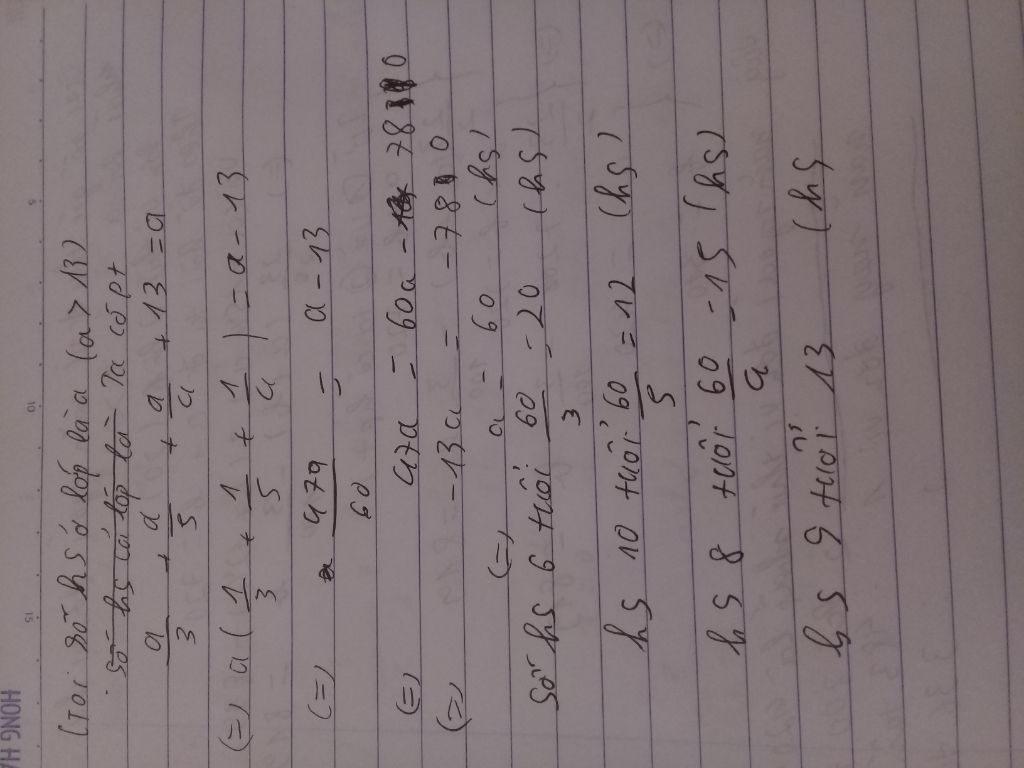 HONG HA
Gọi số hs ở lớp là a (a > 13)
số hs cả lớp là Ta có pt
a/3 + a/5 + a/4 + 13 = a
(=) a(1/3 + 1/5 + 1/4) = a - 13
(=) 47a/60 = a - 13
(=) 47a = 60a - 780
(=) -13a = -780
(=) a = 60 (hs)
Số hs 6 tuổi 60/3 = 20 (hs)
hs 10 tuổi 60/5 = 12 (hs)
hs 8 tuổi 60/4 = 15 (hs)
hs 9 tuổi 13 (hs